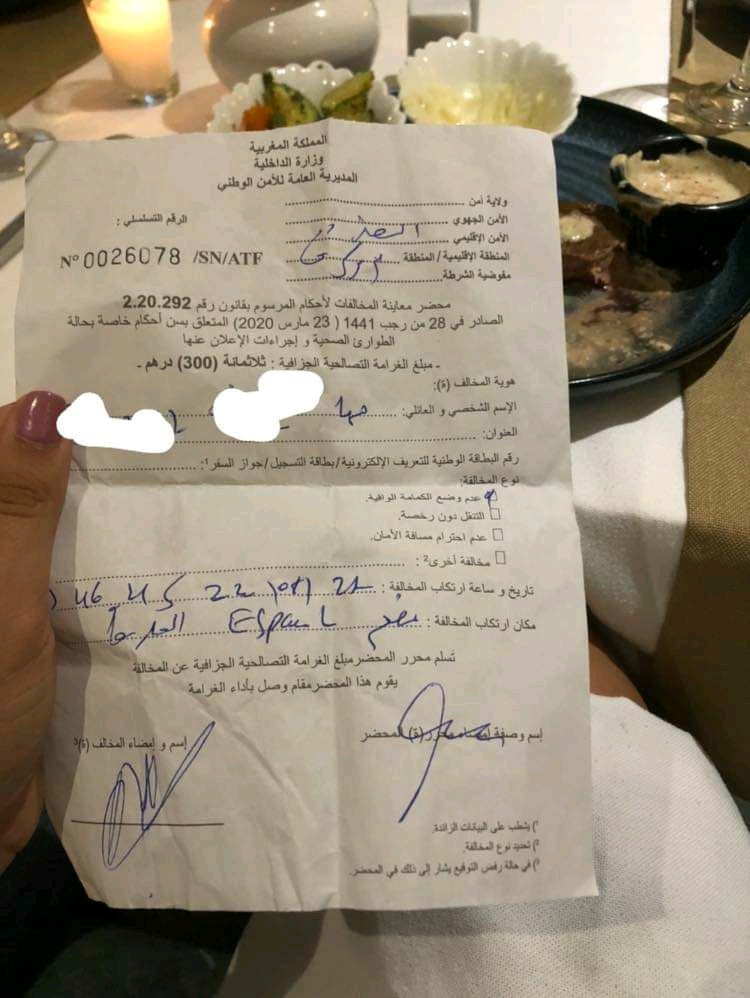 المملكة المغربية
وزارة الداخلية
المديرية العامة للأمن الوطني
ولاية أمن
الأمن الجهوي
الأمن الإقليمي
المنطقة الإقليمية/المنطقة
مفوضية الشرطة
الرقم التسلسلي :
N° 0026078 /SN/ATF
محضر معاينة المخالفات لأحكام المرسوم بقانون رقم 2.20.292
الصادر في 28 من رجب 1441 ( 23 مارس 2020) المتعلق بسن أحكام خاصة بحالة
الطوارئ الصحية و إجراءات الإعلان عنها
- مبلغ الغرامة التصالحية الجزافية : ثلاثمانة (300) درهم -
هوية المخالف (ة):
الإسم الشخصي و العائلي: مها
العنوان:
رقم البطاقة الوطنية للتعريف الإلكترونية/بطاقة التسجيل/جواز السفر¹:
نوع المخالفة:
عدم وضع الكمامة الواقية.
التنقل دون رخصة.
عدم احترام مسافة الأمان.
مخالفة أخرى² :
تاريخ و ساعة ارتكاب المخالفة : 21
مكان ارتكاب المخالفة :
تسلم محرر المحضر مبلغ الغرامة التصالحية الجزافية عن المخالفة
يقوم هذا المحضر مقام وصل بأداء الغرامة
إسم وصفة إمضاء محرر(ة) المحضر
إسم و إمضاء المخالف (ة)³
¹) يشطب على البيانات الزائدة.
²) تحديد نوع المخالفة.
³) في حالة رفض التوقيع يشار إلى ذلك في المحضر.